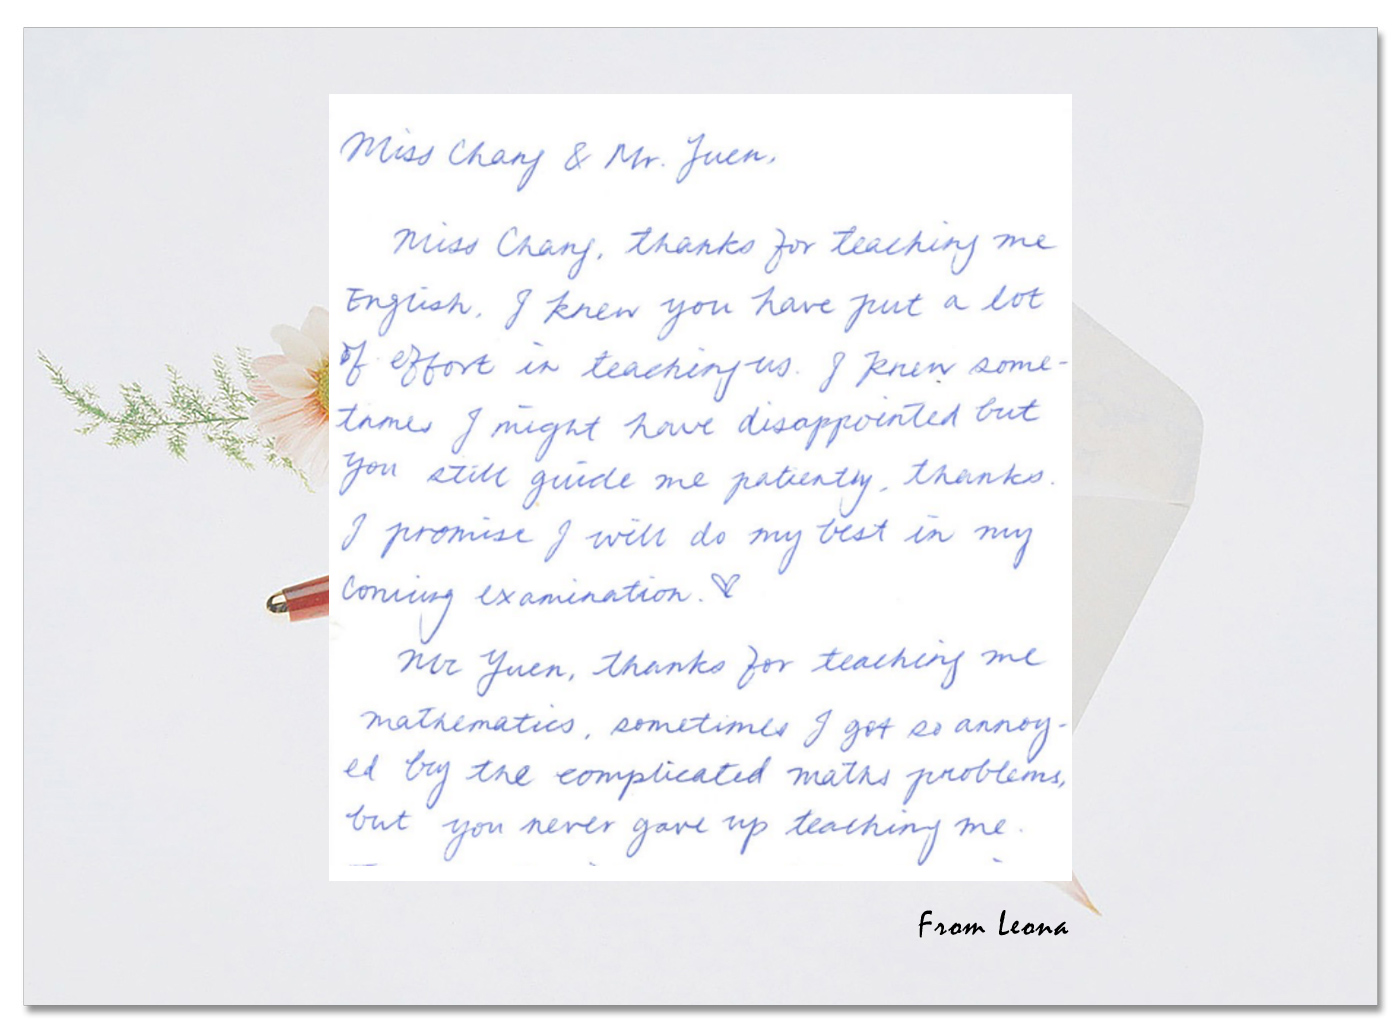 Miss Chang & Mr. Yuen,
Miss Chang, thanks for teaching me
English. I knew you have put a lot
of effort in teaching us. I knew some-
times I might have disappointed but
you still guide me patiently, thanks.
I promise I will do my best in my
coming examination. ♡
Mr Yuen, thanks for teaching me
mathematics, sometimes I got so annoy-
ed by the complicated maths problems,
but you never gave up teaching me.
From Leona